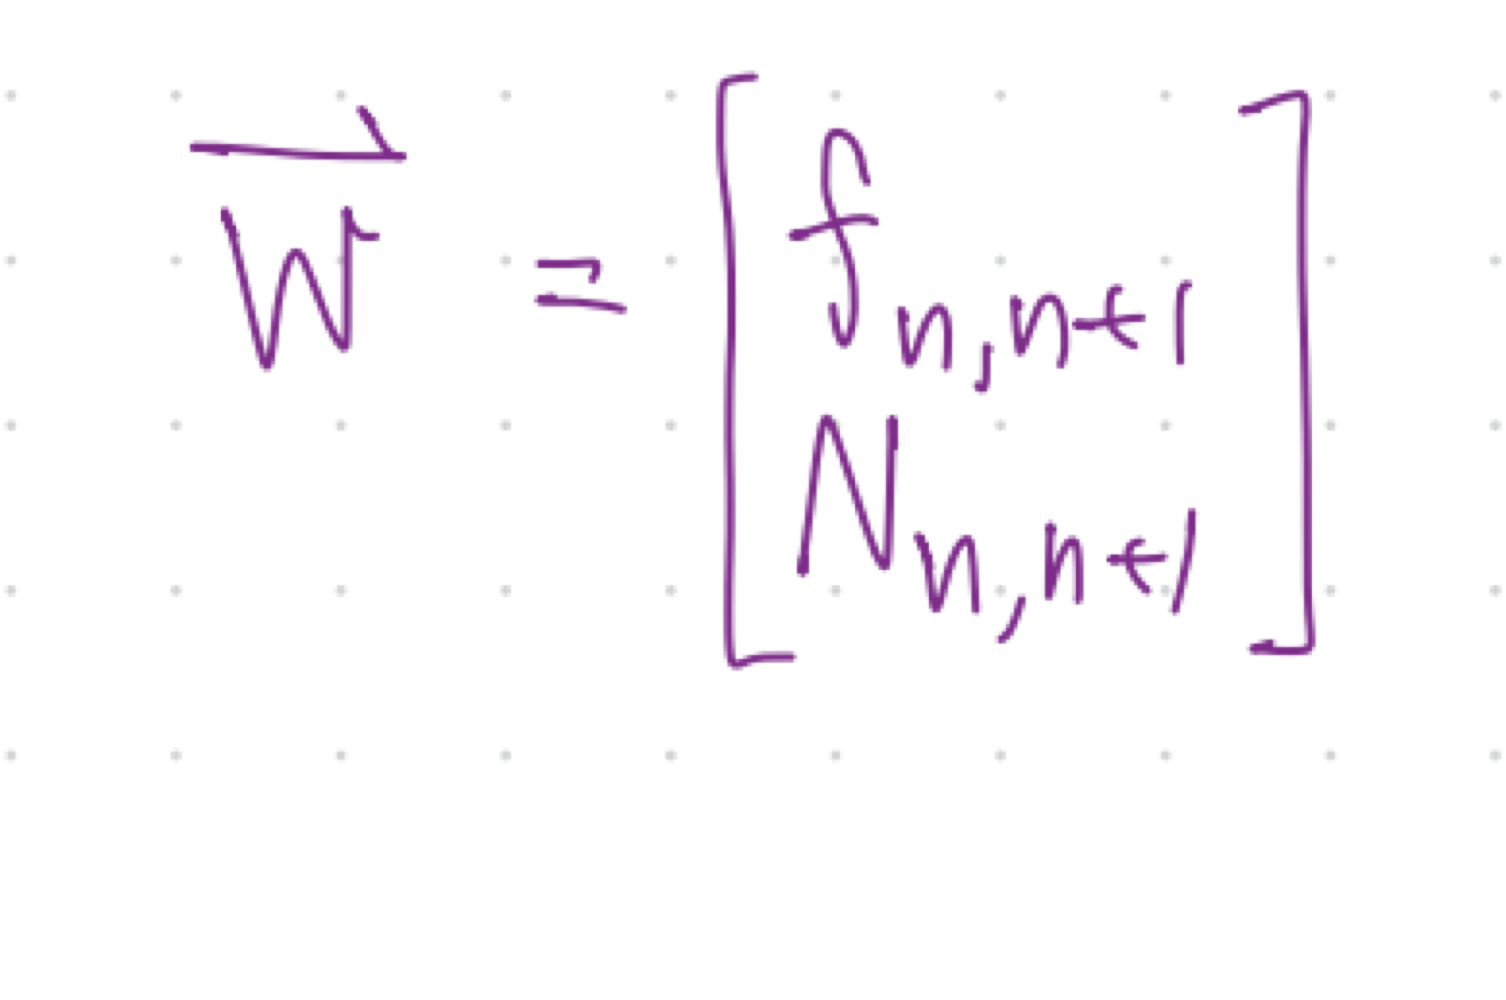 $\vec{W} = \begin{bmatrix} f_{n,n+1} \\ N_{n,n+1} \end{bmatrix}$